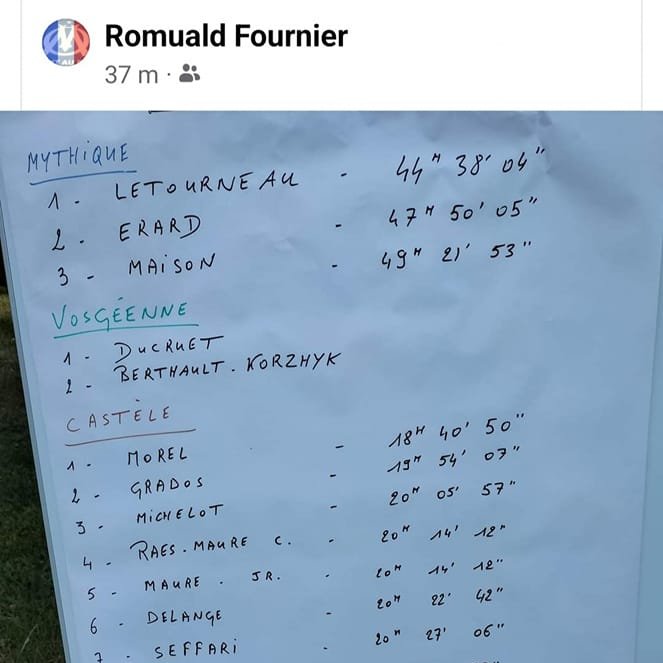 Romuald Fournier
37 m ·
MYTHiQUE
1 - LETOURNEAU - 44H 38' 04"
2 - ERARD - 47H 50' 05"
3 - MAiSON - 49H 21' 53"
VOSGÉENNE
1 - DUCRUET
2 - BERTHAULT . KORZHYK
CASTÈLE
1 - MOREL - 18H 40' 50"
2 - GRADOS - 19H 54' 07"
3 - MiCHELOT - 20H 05' 57"
4 - RAES . MAURE C. - 20H 14' 12"
5 - MAURE . JR. - 20H 14' 12"
6 - DELANGE - 20H 22' 42"
7 - SEFFARi - 20H 27' 06"